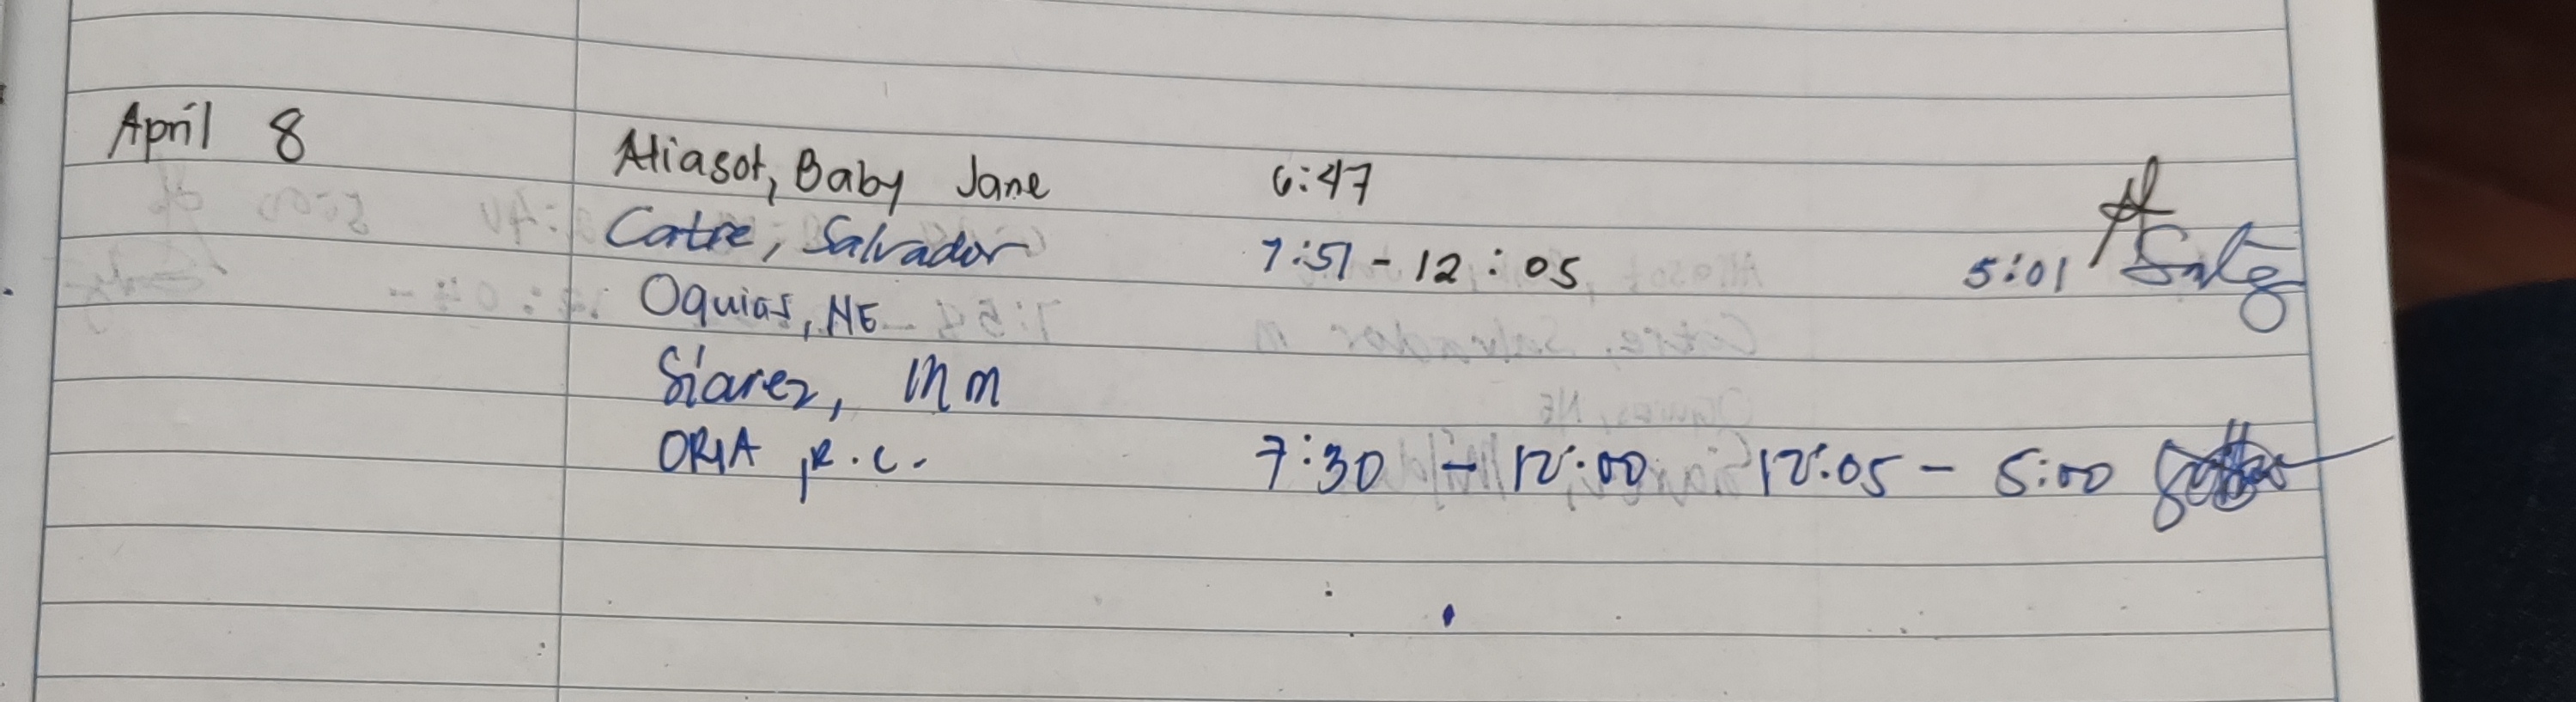 April 8 Aliasot, Baby Jane 6:47
Catre, Salvador 7:51 - 12:05 5:01
Oquias, NE
Siarez, MM
ORIA, R.C. 7:30 - 12:00 12:05 - 5:00